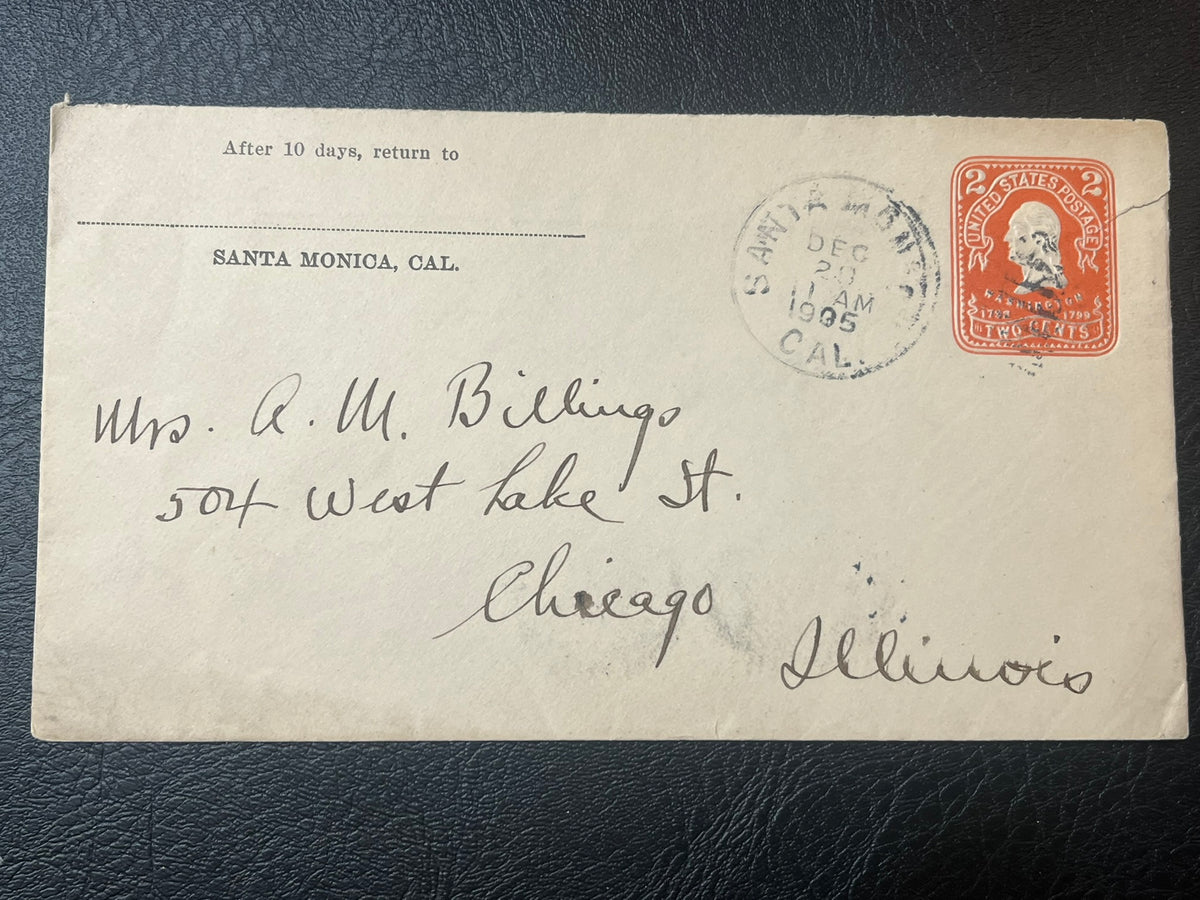 After 10 days, return to
SANTA MONICA, CAL.
SANTA MONICA
DEC
20
11 AM
1905
CAL.
2 2
UNITED STATES POSTAGE
WASHINGTON
1732 1799
TWO CENTS
Mrs. A. M. Billings
504 West Lake St.
Chicago
Illinois